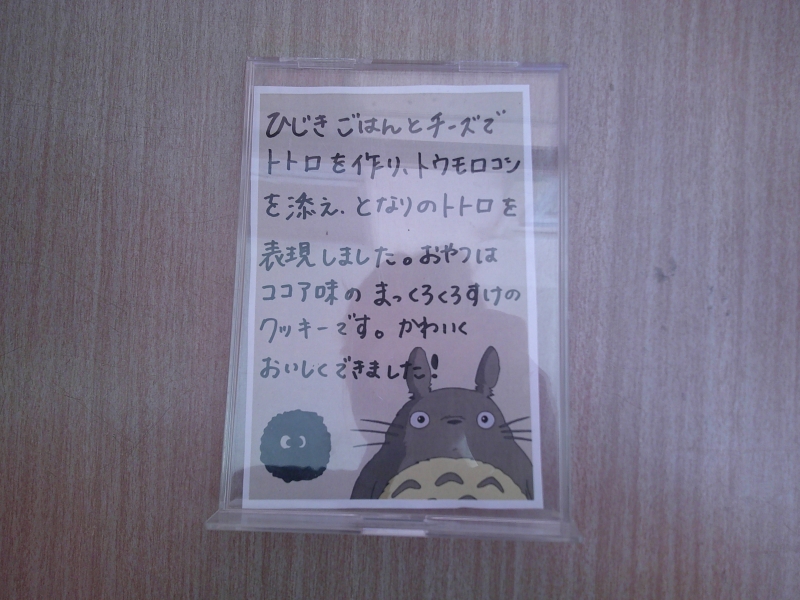 ひじきごはんとチーズで
トトロを作り、トウモロコシ
を添え、となりのトトロを
表現しました。おやつは
ココア味のまっくろくろすけの
クッキーです。かわいく
おいしくできました!